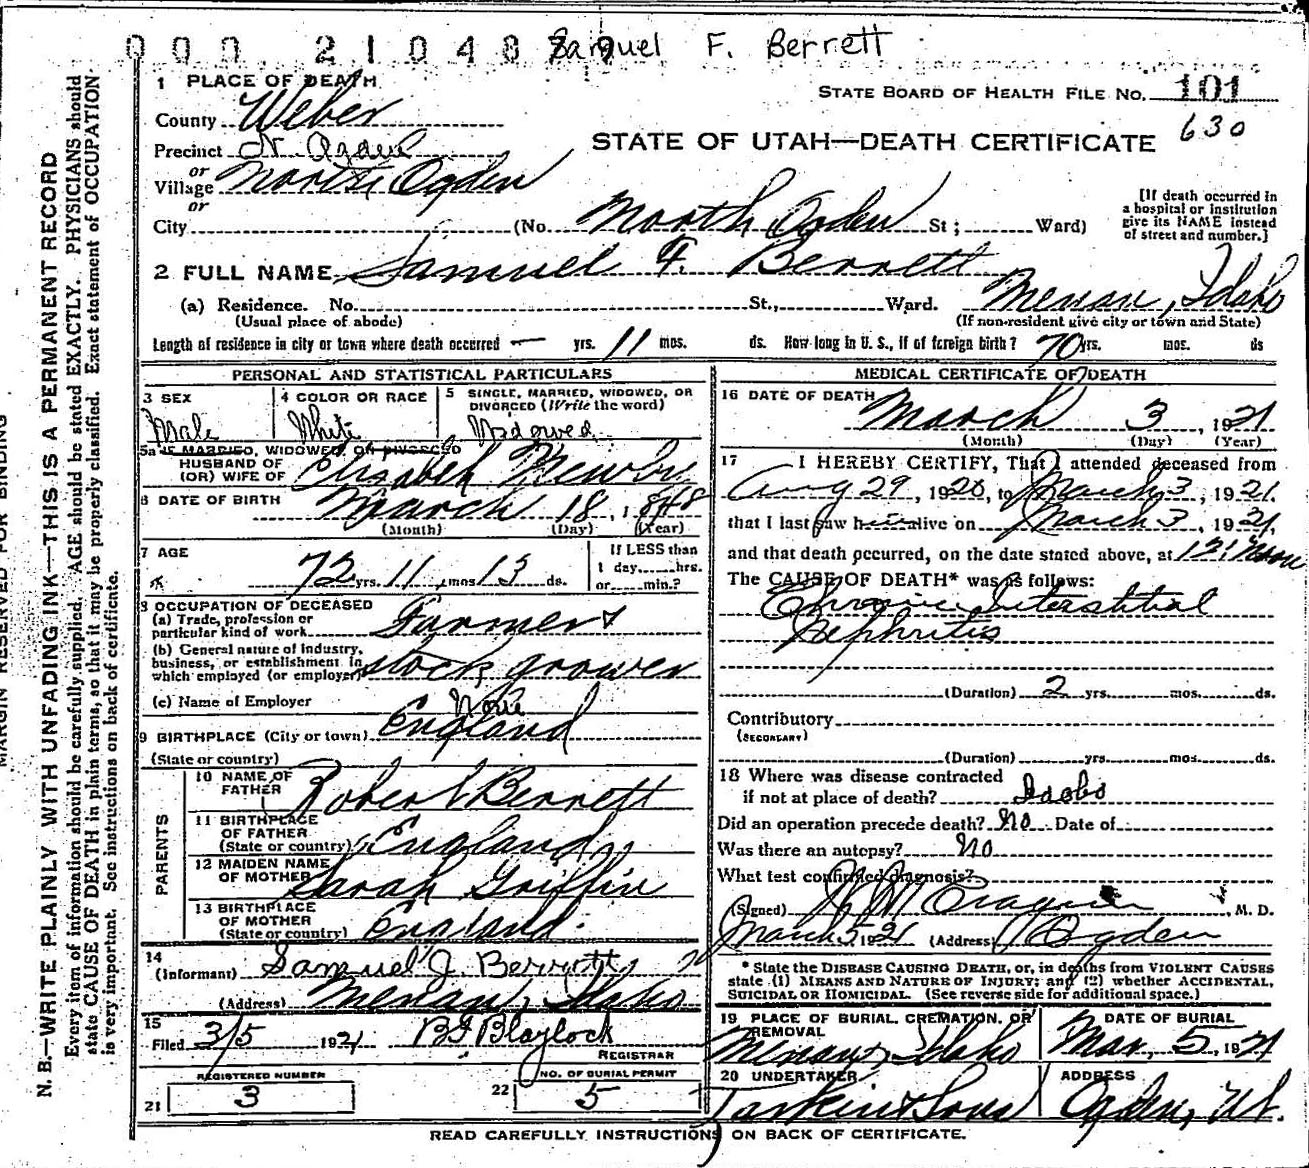 Samuel F. Berrett
1 PLACE OF DEATH
STATE BOARD OF HEALTH FILE NO. 101
630
County Weber
STATE OF UTAH—DEATH CERTIFICATE
Precinct N. Ogden
or
Village North Ogden
or
City (No. North Ogden St; Ward)
[If death occurred in a hospital or institution give its NAME instead of street and number.]
2 FULL NAME Samuel F. Berrett
(a) Residence. No. St., Ward. Menan, Idaho
(Usual place of abode) (If non-resident give city or town and State)
Length of residence in city or town where death occurred — yrs. 11 mos. ds. How long in U. S., if of foreign birth? 70 yrs. mos. ds
PERSONAL AND STATISTICAL PARTICULARS
3 SEX
Male
4 COLOR OR RACE
White
5 SINGLE, MARRIED, WIDOWED, OR DIVORCED (Write the word)
Widowed
5a IF MARRIED, WIDOWED, OR DIVORCED
HUSBAND OF
(OR) WIFE OF Elizabeth
6 DATE OF BIRTH March 18, 1848
(Month) (Day) (Year)
7 AGE
72 yrs. 11 mos 13 ds.
If LESS than
1 day hrs.
or min.?
8 OCCUPATION OF DECEASED
(a) Trade, profession or particular kind of work Farmer &
(b) General nature of Industry, business, or establishment in which employed (or employer) stock grower
(c) Name of Employer None
9 BIRTHPLACE (City or town) England
(State or country)
PARENTS
10 NAME OF FATHER Robert Berrett
11 BIRTHPLACE OF FATHER
(State or country) England
12 MAIDEN NAME OF MOTHER Sarah Griffin
13 BIRTHPLACE OF MOTHER
(State or country) England.
14
(Informant) Samuel J. Berrett
(Address) Menan, Idaho
15
Filed 3/5 1921 Blaylock
REGISTRAR
REGISTERED NUMBER
21 3
NO. OF BURIAL PERMIT
22 5
MEDICAL CERTIFICATE OF DEATH
16 DATE OF DEATH March 3, 1921
(Month) (Day) (Year)
17 I HEREBY CERTIFY, That I attended deceased from
Aug 29, 1920, to March 3, 1921.
that I last saw him alive on March 3, 1921,
and that death occurred, on the date stated above, at 12: Noon
The CAUSE OF DEATH* was as follows:
Chronic Interstitial
Nephritis
(Duration) 2 yrs. mos. ds.
Contributory
(SECONDARY)
(Duration) yrs. mos. ds.
18 Where was disease contracted
if not at place of death? Idaho
Did an operation precede death? No Date of
Was there an autopsy? No
What test confirmed diagnosis?
(Signed) M. D.
March 5 1921 (Address) Ogden
* State the DISEASE CAUSING DEATH, or, in deaths from VIOLENT CAUSES
state (1) MEANS AND NATURE OF INJURY; and (2) whether ACCIDENTAL,
SUICIDAL OR HOMICIDAL. (See reverse side for additional space.)
19 PLACE OF BURIAL, CREMATION, OR REMOVAL
Menan, Idaho
DATE OF BURIAL
Mar. 5, 1921
20 UNDERTAKER
Larkin & Sons
ADDRESS
Ogden, Ut.
READ CAREFULLY INSTRUCTIONS ON BACK OF CERTIFICATE.
MARGIN RESERVED FOR BINDING
N. B.—WRITE PLAINLY WITH UNFADING INK—THIS IS A PERMANENT RECORD
Every item of information should be carefully supplied. AGE should be stated EXACTLY. PHYSICIANS should
state CAUSE OF DEATH in plain terms, so that it may be properly classified. Exact statement of OCCUPATION
is very important. See instructions on back of certificate.